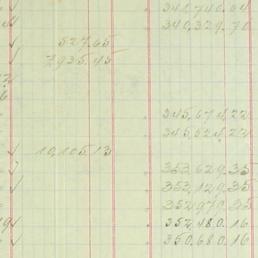 340,740.64
340,329.70
527.65
7935.45
345,674.22
345,524.22
10,105.13
353,629.35
353,129.35
352,970.35
352,480.16
350,680.16